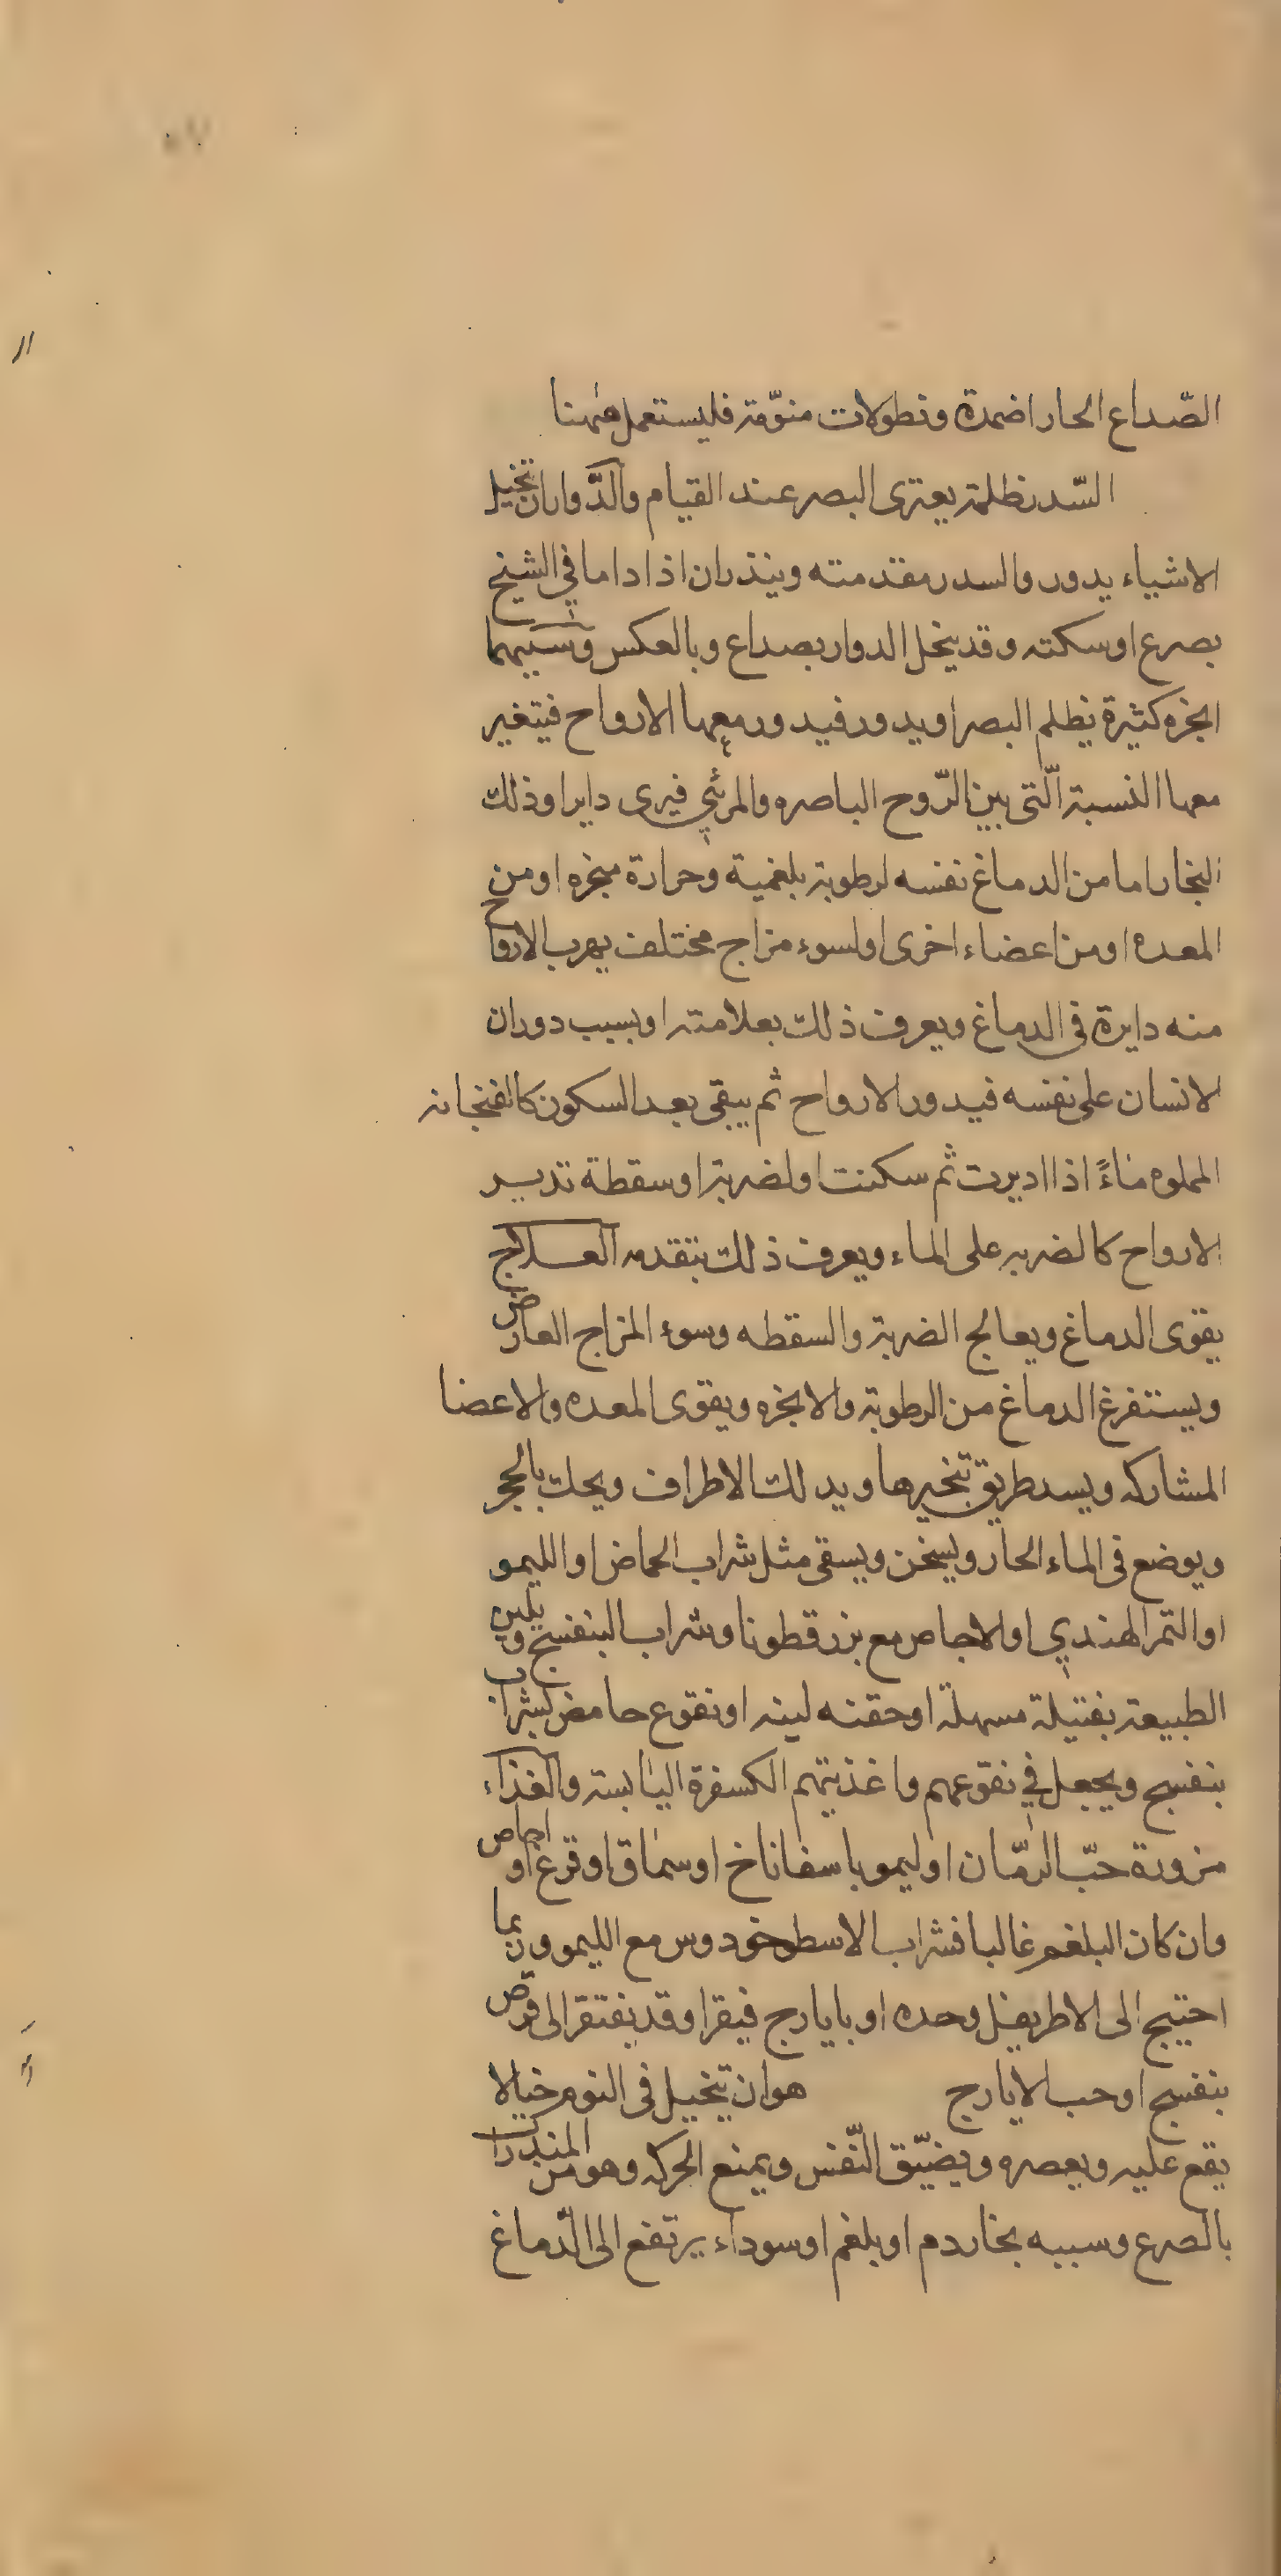 الصّداع الحار اضمدة ونطولات منوّمة فليستعمل ههنا
السّدر ظلمة يعترى البصر عند القيام والدّوار ان تخيل
الاشياء يدور والسدر مقدمته وينذران اذا داما في الشيخ
بصرع او سكته وقد ينحل الدوار بصداع وبالعكس وسببهما
ابخره كثيرة يظلم البصر او يدور فيدور معها الارواح فيتغير
معها النسبة الّتى بين الرّوح الباصره والمرئي فيرى دايرا وذلك
البخار اما من الدماغ نفسه لرطوبة بلغمية وحرارة مبخره او من
المعده او من اعضاء اخرى او لسوء مزاج مختلف يهرب الارواح
منه دايرة فى الدماغ ويعرف ذلك بعلامته او بسبب دوران
الانسان على نفسه فيدور الارواح ثم يبقى بعد السكون كالفنجانه
المملوه ماءً اذا اديرت ثم سكنت او لضربة او سقطة تدير
الارواح كالضربه على الماء ويعرف ذلك بتقدمه العلاج
يقوى الدماغ ويعالج الضربة والسقطه وسوء المزاج العارض
ويستفرغ الدماغ من الرطوبة والابخره ويقوى المعده والاعضا
المشاركه ويسد طريق تبخيرها ويدلك الاطراف ويحك بالحجر
ويوضع فى الماء الحار ويسخن ويسقى مثل شراب الحماض او الليمو
او التمر الهندي او الاجاص مع بزر قطونا وشراب البنفسج ويلين
الطبيعة بفتيلة مسهلة او حقنه لينه او نقوع حامض بشراب
بنفسج ويجعل في نقوعهم واغذيتهم الكسفرة اليابسة والغذاء
مزورة حبّ الرمّان او ليمو باسفاناخ او سماق او قرع او اجاص
وان كان البلغم غالبا فشراب الاسطوخودوس مع الليمو وربما
احتيج الى الاطريفل وحده او بايارج فيقرا وقد يفتقر الى قرص
بنفسج او حب الايارج هو ان يتخيل فى النوم خيالا
يقع عليه ويعصره ويضيّق النّفس ويمنع الحركه وهو من المنذرات
بالصرع وسببه بخار دم او بلغم او سوداء يرتفع الى الدّماغ